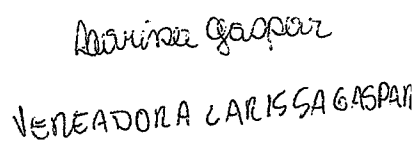 Larissa Gaspar
VEREADORA LARISSA GASPAR